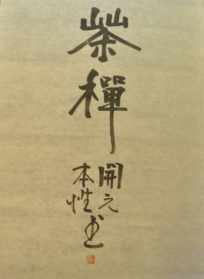 茶禪
開元
本性書